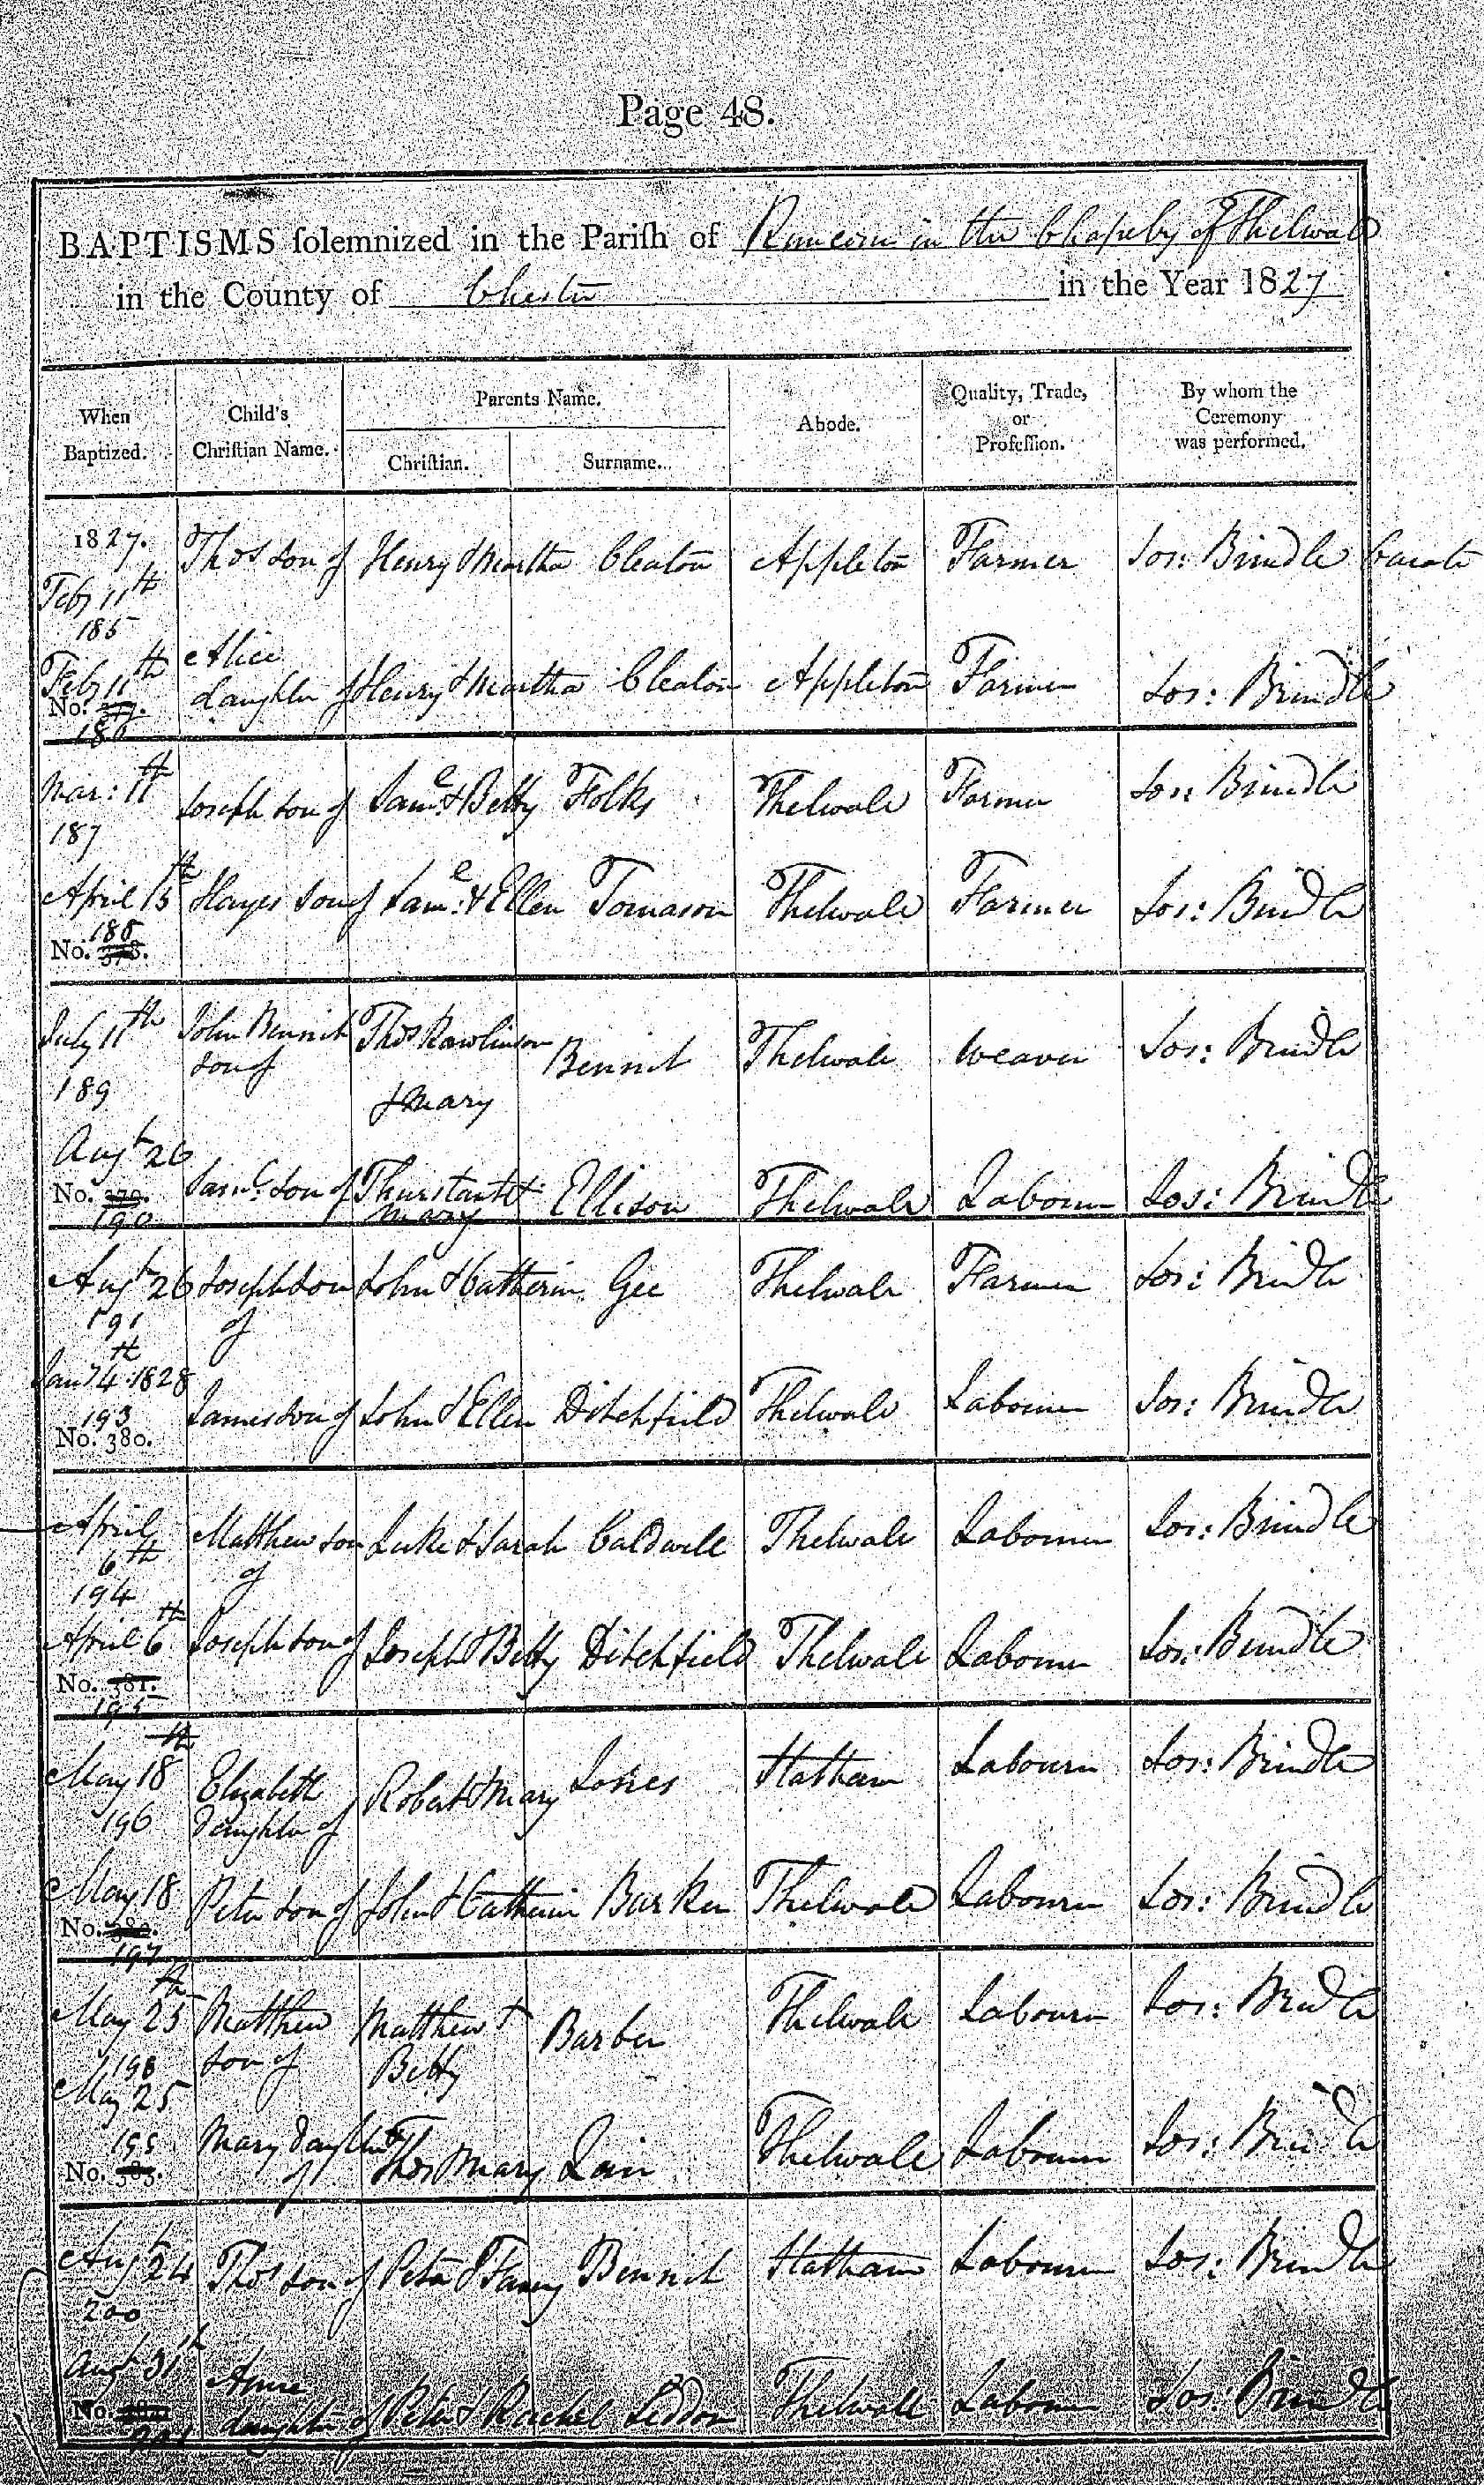 Page 48.
BAPTISMS solemnized in the Parish of Runcorn in the Chapelry of Thelwall
in the County of Chester in the Year 1827
When Baptized. Child's Christian Name. Parents Name. Christian. Surname. Abode. Quality, Trade, or Profession. By whom the Ceremony was performed.
1827. Feby 11th 185 Thos son of Henry & Martha Cleaton Appleton Farmer Jos: Brindle Curate
Feby 11th No. 377. 186 Alice daughter of Henry & Martha Cleaton Appleton Farmer Jos: Brindle
Mar: 11th 187 Joseph son of Saml. & Betty Folks Thelwall Farmer Jos: Brindle
April 15th 188 No. 378. Hayes son of Saml. & Ellen Tomason Thelwall Farmer Jos: Brindle
July 11th 189 John Bennit son of Thos Rawlinson & Mary Bennit Thelwall Weaver Jos: Brindle
Augt 26 No. 379. 190 Saml. son of Thurstan & Mary Ellison Thelwall Labourer Jos: Brindle
Augt 26 191 Joseph son of John & Catherine Gee Thelwall Farmer Jos: Brindle
Jany 4th 1828 193 No. 380. James son of John & Ellen Ditchfield Thelwall Labourer Jos: Brindle
April 6th 194 Matthew son of Luke & Sarah Caldwell Thelwall Labourer Jos: Brindle
April 6th No. 381. 195 Joseph son of Joseph & Betty Ditchfield Thelwall Labourer Jos: Brindle
May 18th 196 Elizabeth daughter of Robert & Mary Statham Labourer Jos: Brindle
May 18 No. 382. 197 Peter son of John & Catherine Thelwall Labourer Jos: Brindle
May 25th 198 Matthew son of Matthew & Betty Barber Thelwall Labourer Jos: Brindle
May 25 199 No. 383. Mary daughter of Thos Mary Thelwall Labourer Jos: Brindle
Augt 24 200 Thos son of Peter & Fanny Bennit Statham Labourer Jos: Brindle
Augt 31th No. 384. 201 Anne daughter of Peter & Rachel Seddon Thelwall Labourer Jos: Brindle